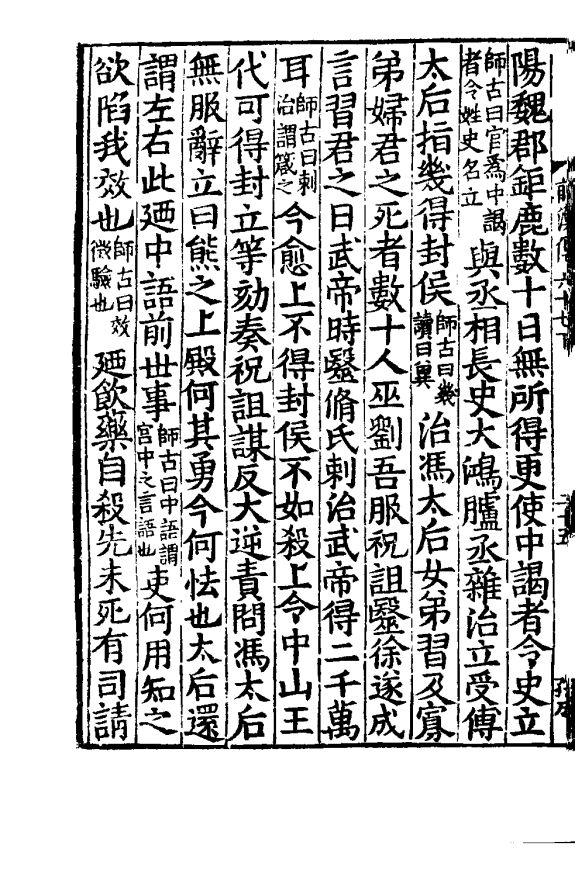 陽魏郡鉅鹿數十日無所得更使中謁者令史立
師古曰官爲中謁者令姓史名立與丞相長史大鴻臚丞雜治立受傅
太后指幾得封侯師古曰幾讀曰冀治馮太后女弟習及寡
弟婦君之死者數十人巫劉吾服祝詛毉徐遂成
言習君之曰武帝時毉脩氏刺治武帝得二千萬
耳師古曰刺治謂箴之今愈上不得封侯不如殺上令中山王
代可得封立等劾奏祝詛謀反大逆責問馮太后
無服辭立曰熊之上殿何其勇今何怯也太后還
謂左右此廼中語前丗事師古曰中語謂宮中之言語也吏何用知之
欲陷我效也師古曰效徵驗也廼飲藥自殺先未死有司請
前漢傳六十七下
二十五